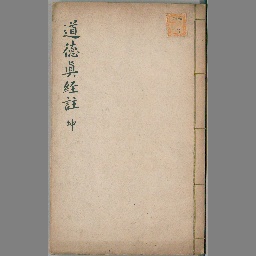 道德眞經註 坤